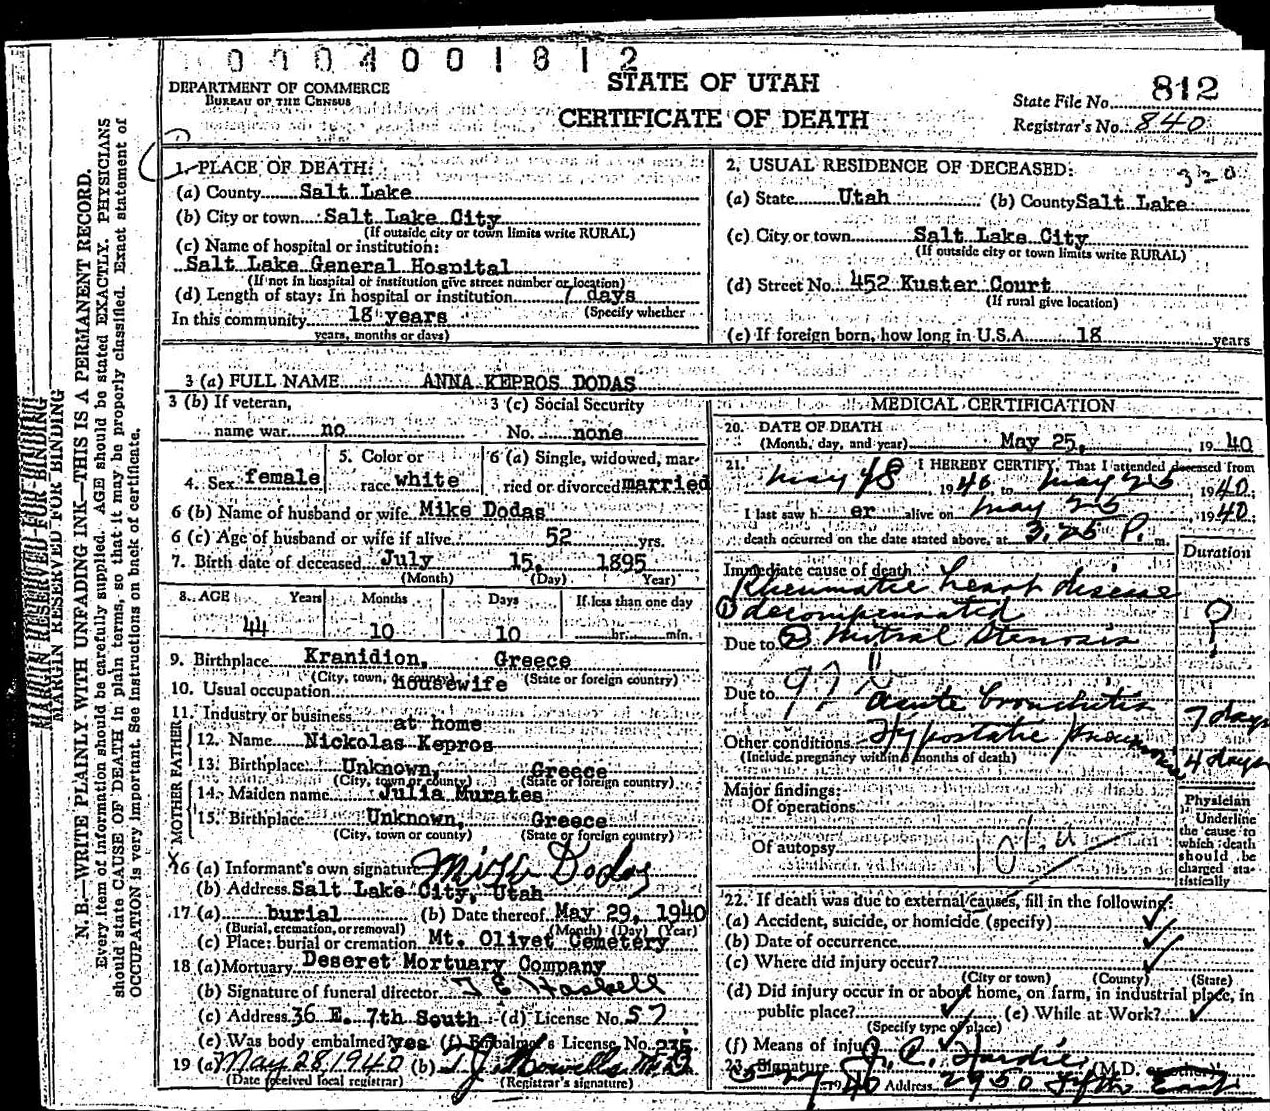 0004001812
DEPARTMENT OF COMMERCE
BUREAU OF THE CENSUS
STATE OF UTAH
CERTIFICATE OF DEATH
State File No. 812
Registrar's No. 840
MARGIN RESERVED FOR BINDING
N. B.—WRITE PLAINLY WITH UNFADING INK—THIS IS A PERMANENT RECORD.
Every item of information should be carefully supplied. AGE should be stated EXACTLY. PHYSICIANS
should state CAUSE OF DEATH in plain terms, so that it may be properly classified. Exact statement of
OCCUPATION is very important. See instructions on back of certificate.
1. PLACE OF DEATH:
(a) County Salt Lake
(b) City or town Salt Lake City
(If outside city or town limits write RURAL)
(c) Name of hospital or institution:
Salt Lake General Hospital
(If not in hospital or institution give street number or location)
(d) Length of stay: In hospital or institution 7 days
(Specify whether
In this community 18 years
years, months or days)
2. USUAL RESIDENCE OF DECEASED:
320
(a) State Utah (b) County Salt Lake
(c) City or town Salt Lake City
(If outside city or town limits write RURAL)
(d) Street No. 452 Kuster Court
(If rural give location)
(e) If foreign born, how long in U.S.A. 18 years
3 (a) FULL NAME ANNA KEPROS DODAS
3 (b) If veteran,
name war no
3 (c) Social Security
No. none
4. Sex female
5. Color or
race white
6 (a) Single, widowed, mar-
ried or divorced married
6 (b) Name of husband or wife Mike Dodas
6 (c) Age of husband or wife if alive 52 yrs.
7. Birth date of deceased July 15, 1895
(Month) (Day) Year)
8. AGE Years Months Days If less than one day
44 10 10 hr. min.
9. Birthplace Kranidion, Greece
(City, town, or county) (State or foreign country)
10. Usual occupation housewife
11. Industry or business at home
FATHER
12. Name Nickolas Kepros
13. Birthplace Unknown, Greece
(City, town or county) (State or foreign country)
MOTHER
14. Maiden name Julia Murates
15. Birthplace Unknown, Greece
(City, town or county) (State or foreign country)
X16 (a) Informant's own signature Mike Dodas
(b) Address Salt Lake City, Utah
17 (a) burial (b) Date thereof May 29, 1940
(Burial, cremation, or removal) (Month) (Day) (Year)
(c) Place: burial or cremation Mt. Olivet Cemetery
18 (a) Mortuary Deseret Mortuary Company
(b) Signature of funeral director Haskell
(c) Address 36 E. 7th South (d) License No. 57
(e) Was body embalmed? yes (f) Embalmer's License No. 235
19 (a) May 28, 1940 (b) T. J. Howells M.D.
(Date received local registrar) (Registrar's signature)
MEDICAL CERTIFICATION
20. DATE OF DEATH
(Month, day, and year) May 25, 1940
21. I HEREBY CERTIFY, That I attended deceased from
May 18 1940 to May 25 1940
I last saw her alive on May 25, 1940
death occurred on the date stated above, at 3.25 P. m.
Duration
Immediate cause of death
Rheumatic heart disease
① decompensated
Due to ② Mitral Stenosis
Due to Acute bronchitis 7 days
Other conditions Hypostatic Pneumonia 4 days
(Include pregnancy within 3 months of death)
Major findings:
Of operations
Of autopsy
Physician
Underline
the cause to
which death
should be
charged sta-
tistically
22. If death was due to external causes, fill in the following:
(a) Accident, suicide, or homicide (specify)
(b) Date of occurrence
(c) Where did injury occur?
(City or town) (County) (State)
(d) Did injury occur in or about home, on farm, in industrial place, in
public place? (e) While at Work?
(Specify type of place)
(f) Means of injury
23. Signature J. C. Hardie (M.D. or other)
5-27-1940 Address 2950 Fifth East